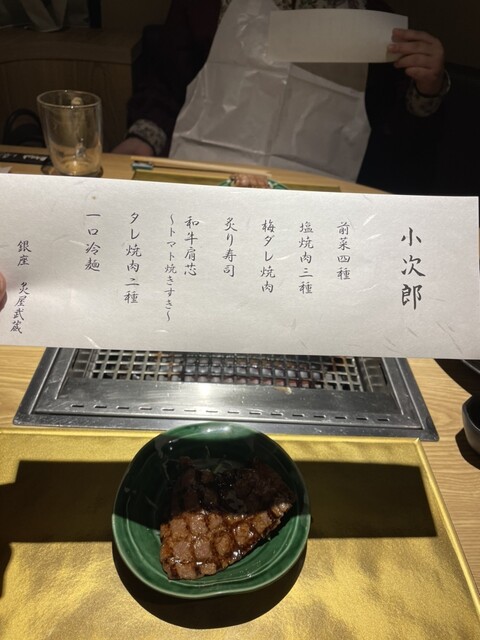 小次郎
前菜四種
塩焼肉三種
梅ダレ焼肉
炙り寿司
和牛肩芯
〜トマト焼きすき〜
タレ焼肉二種
一口冷麺
銀座 炙屋武蔵